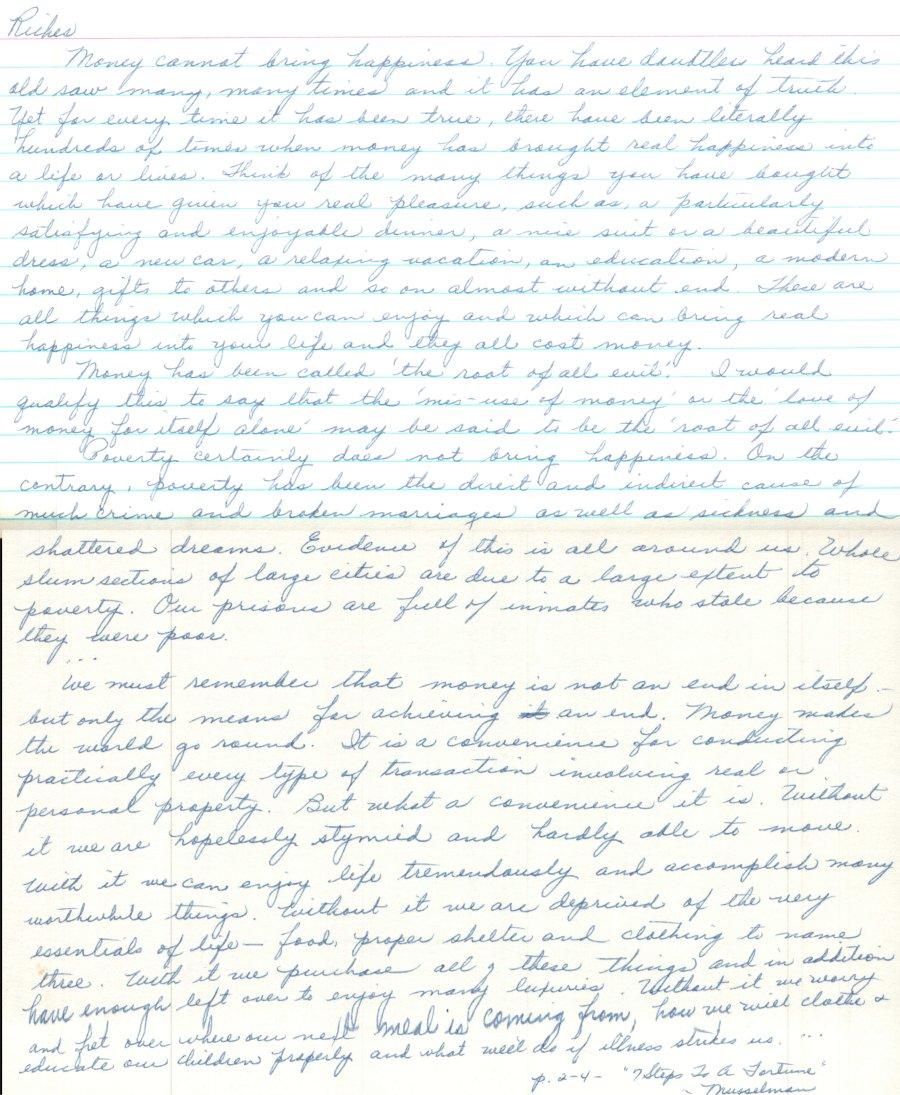 Riches
Money cannot bring happiness. You have doubtless heard this
old saw many, many times and it has an element of truth.
Yet for every time it has been true, there have been literally
hundreds of times when money has brought real happiness into
a life or lives. Think of the many things you have bought
which have given you real pleasure, such as, a particularly
satisfying and enjoyable dinner, a nice suit or a beautiful
dress, a new car, a relaxing vacation, an education, a modern
home, gifts to others and so on almost without end. These are
all things which you can enjoy and which can bring real
happiness into your life and they all cost money.
Money has been called 'the root of all evil'. I would
qualify this to say that the 'mis-use of money' or the 'love of
money for itself alone' may be said to be the 'root of all evil'.
Poverty certainly does not bring happiness. On the
contrary, poverty has been the direct and indirect cause of
much crime and broken marriages as well as sickness and
shattered dreams. Evidence of this is all around us. Whole
slum sections of large cities are due to a large extent to
poverty. Our prisons are full of inmates who stole because
they were poor.
...
We must remember that money is not an end in itself -
but only the means for achieving an end. Money makes
the world go round. It is a convenience for conducting
practically every type of transaction involving real or
personal property. But what a convenience it is. Without
it we are hopelessly stymied and hardly able to move.
With it we can enjoy life tremendously and accomplish many
worthwhile things. Without it we are deprived of the very
essentials of life - food, proper shelter and clothing to name
three. With it we purchase all of these things and in addition
have enough left over to enjoy many luxuries. Without it we worry
and fret over where our next meal is coming from, how we will clothe &
educate our children properly and what we'll do if illness strikes us. ...
p. 2-4 - "7 Steps To A Fortune"
- Musselman